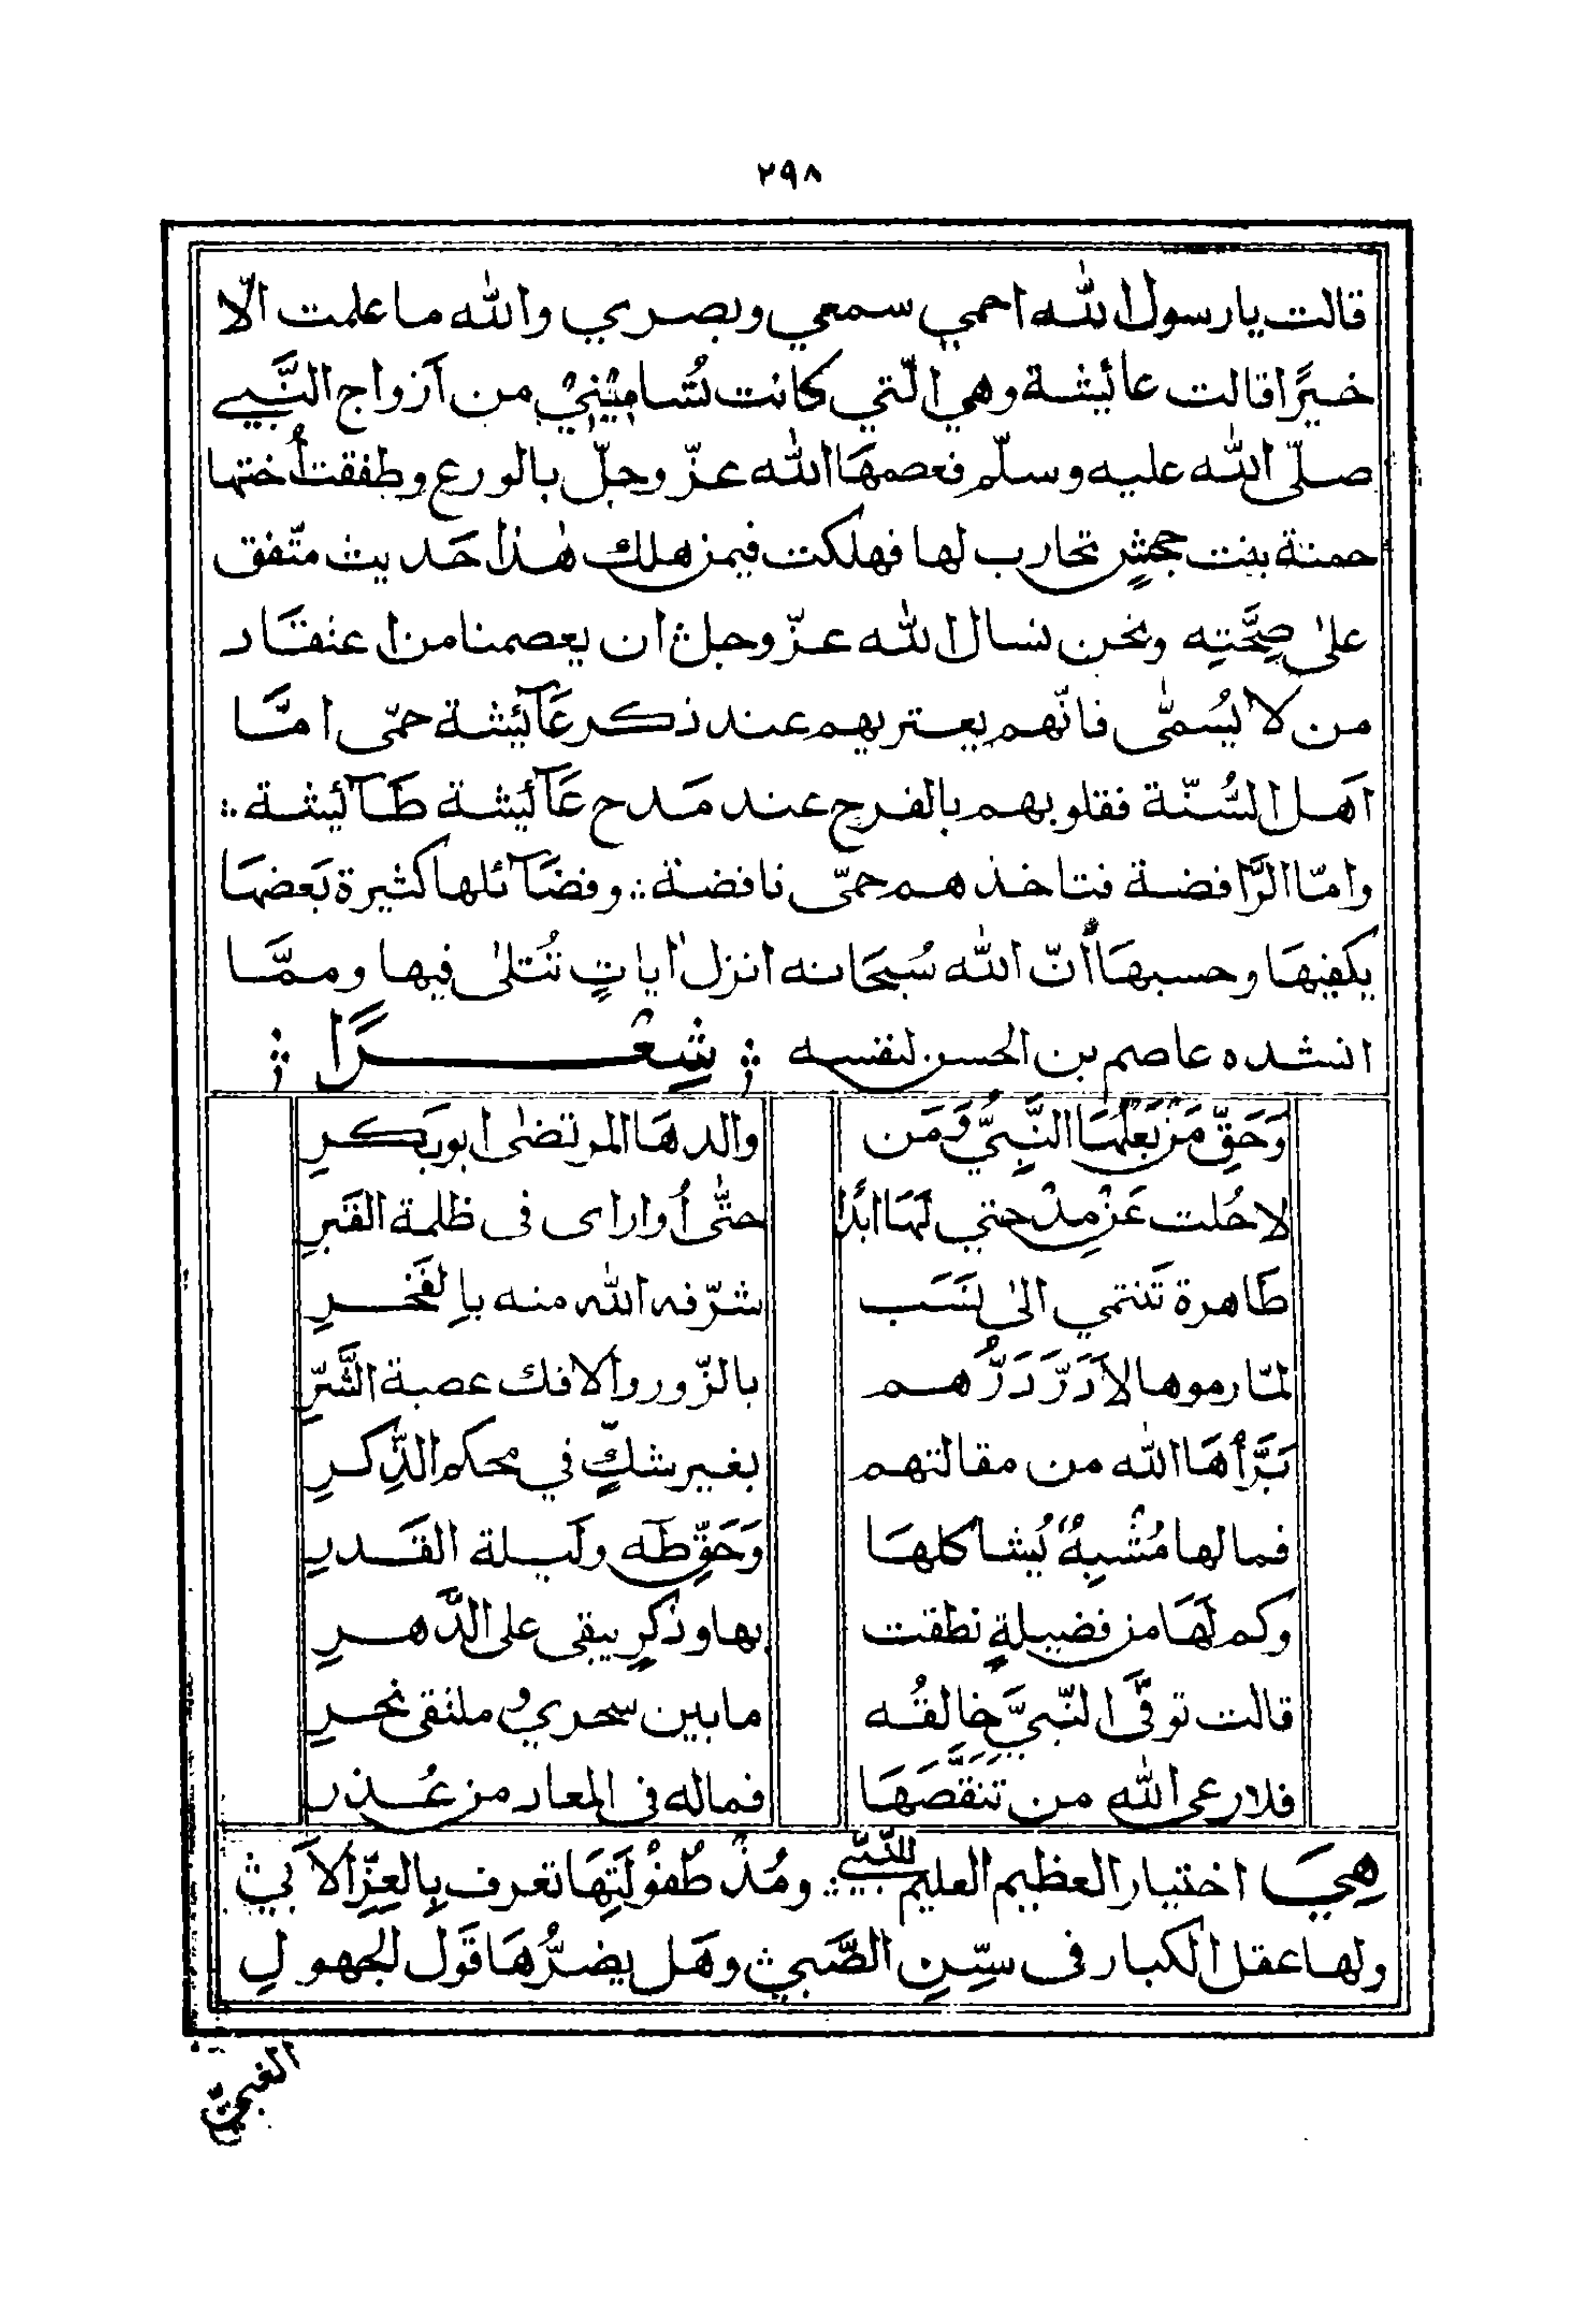 ٢٩٨
قالت يا رسول الله احمي سمعي وبصري والله ما علمت الّا
خيرًا قالت عائيشة وهي الّتي كانت تُسَامِيْنِيْ من أزواج النَّبي
صلّى الله عليه وسلّم فعصمهَا الله عزّ وجلّ بالورع وطفقت أُختها
حمنة بنت جحشٍ تحارب لها فهلكت فيمن هلك هٰذا حَديث متّفق
علىٰ صِحَّتِه ونحن نسال الله عزّ وجلّ ان يعصمنا من اعتقَاد
من لا يُسمّٰى فانّهم يعتريهم عند ذكر عَآئِيشة حمّى امَّا
اَهل السُّنّة فقلوبهم بالفرح عند مَدح عَآئِيشة طَآئِيشة
وامّا الرَّافضة فتاخذهم حمّى نافضة وفضَآئلها كثيرة بَعضهَا
يكفيهَا وحسبهَا أنّ الله سُبحَانه انزل اٰياتٍ تُتلىٰ فيها وممَّا
انشده عاصم بن الحسن لنفسه شِعْرًا
وَحَقِّ مَنْ بَعْلُهَا النَّبِيُّ وَمَن والدهَا المرتضٰى ابو بَكرِ
لا حُلت عَنْ مِدْحتي لَهَا ابدًا حتّٰى أُوارٰى فى ظلمة القَبرِ
طَاهرة تَنتمي الىٰ نَسَب شرّفه الله منه بالفَخرِ
لمّا رموها لا دَرَّ دَرُّهم بالزّور والافك عصبة الشَّرِّ
بَرَّأهَا الله من مقالتهم بغير شكٍّ في محكم الذِّكرِ
فما لها مُشْبِهٌ يُشاكلهَا وَحَقِّ طٰه ولَيلة القَدرِ
وكم لَهَا من فضيلةٍ نطقت بها وذكرٍ يبقى على الدَّهرِ
قالت توفَّى النّبيَّ خالقُه ما بين سحري وملتقى نحرِ
فلا رعى الله من تَنَقَّصَهَا فماله فى المعاد من عُذرِ
هِيَ اختيار العظيم العليم للنَّبيّ ومُذْ طُفُوْلَتِهَا تعرف بِالعِزِّ الاَبيّ
ولها عقل الكبار فى سِّنِ الصَّبيّ وهَل يضرُّهَا قَول الجهولِ
الغبيّ